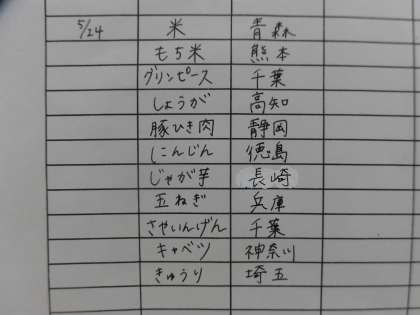 5/24 米 青森
もち米 熊本
グリンピース 千葉
しょうが 高知
豚ひき肉 静岡
にんじん 徳島
じゃが芋 長崎
玉ねぎ 兵庫
さやいんげん 千葉
キャベツ 神奈川
きゅうり 埼玉